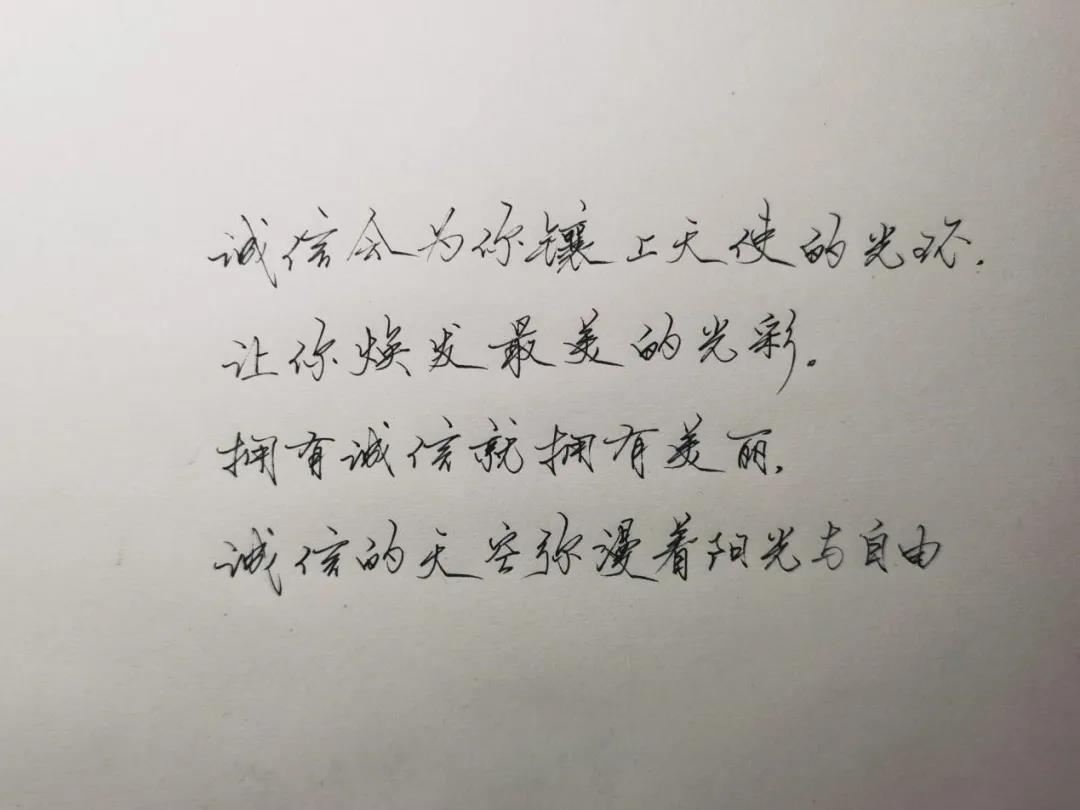 诚信会为你镶上天使的光环.
让你焕发最美的光彩。
拥有诚信就拥有美丽,
诚信的天空弥漫着阳光与自由